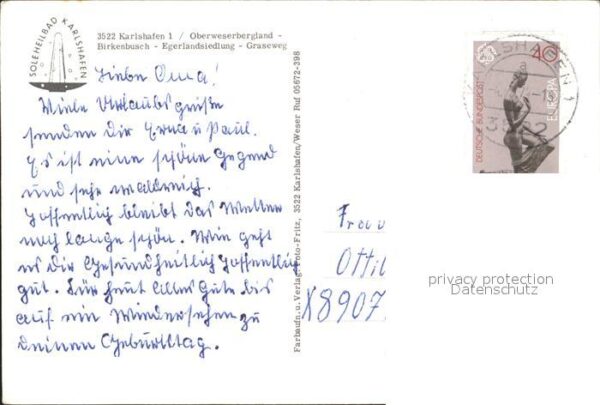 SOLEHEILBAD KARLSHAFEN
3522 Karlshafen 1 / Oberweserbergland -
Birkenbusch - Egerlandsiedlung - Graseweg
Liebe Oma!
Viele Urlaubsgrüße
senden Dir Erna u Paul.
Es ist eine schöne Gegend
und sehr waldreich.
Hoffentlich bleibt das Wetter
noch lange schön. Wie geht
es Dir Gesundheitlich Hoffentlich
gut. Für heut alles Gute bis
auf ein Wiedersehen zu
deinen Geburttag.
Farbaufn. u. Verlag: Foto-Fritz, 3522 Karlshafen/Weser Ruf 05672-398
40
DEUTSCHE BUNDESPOST
EUROPA
Frau
Ottil
X8907
privacy protection
Datenschutz